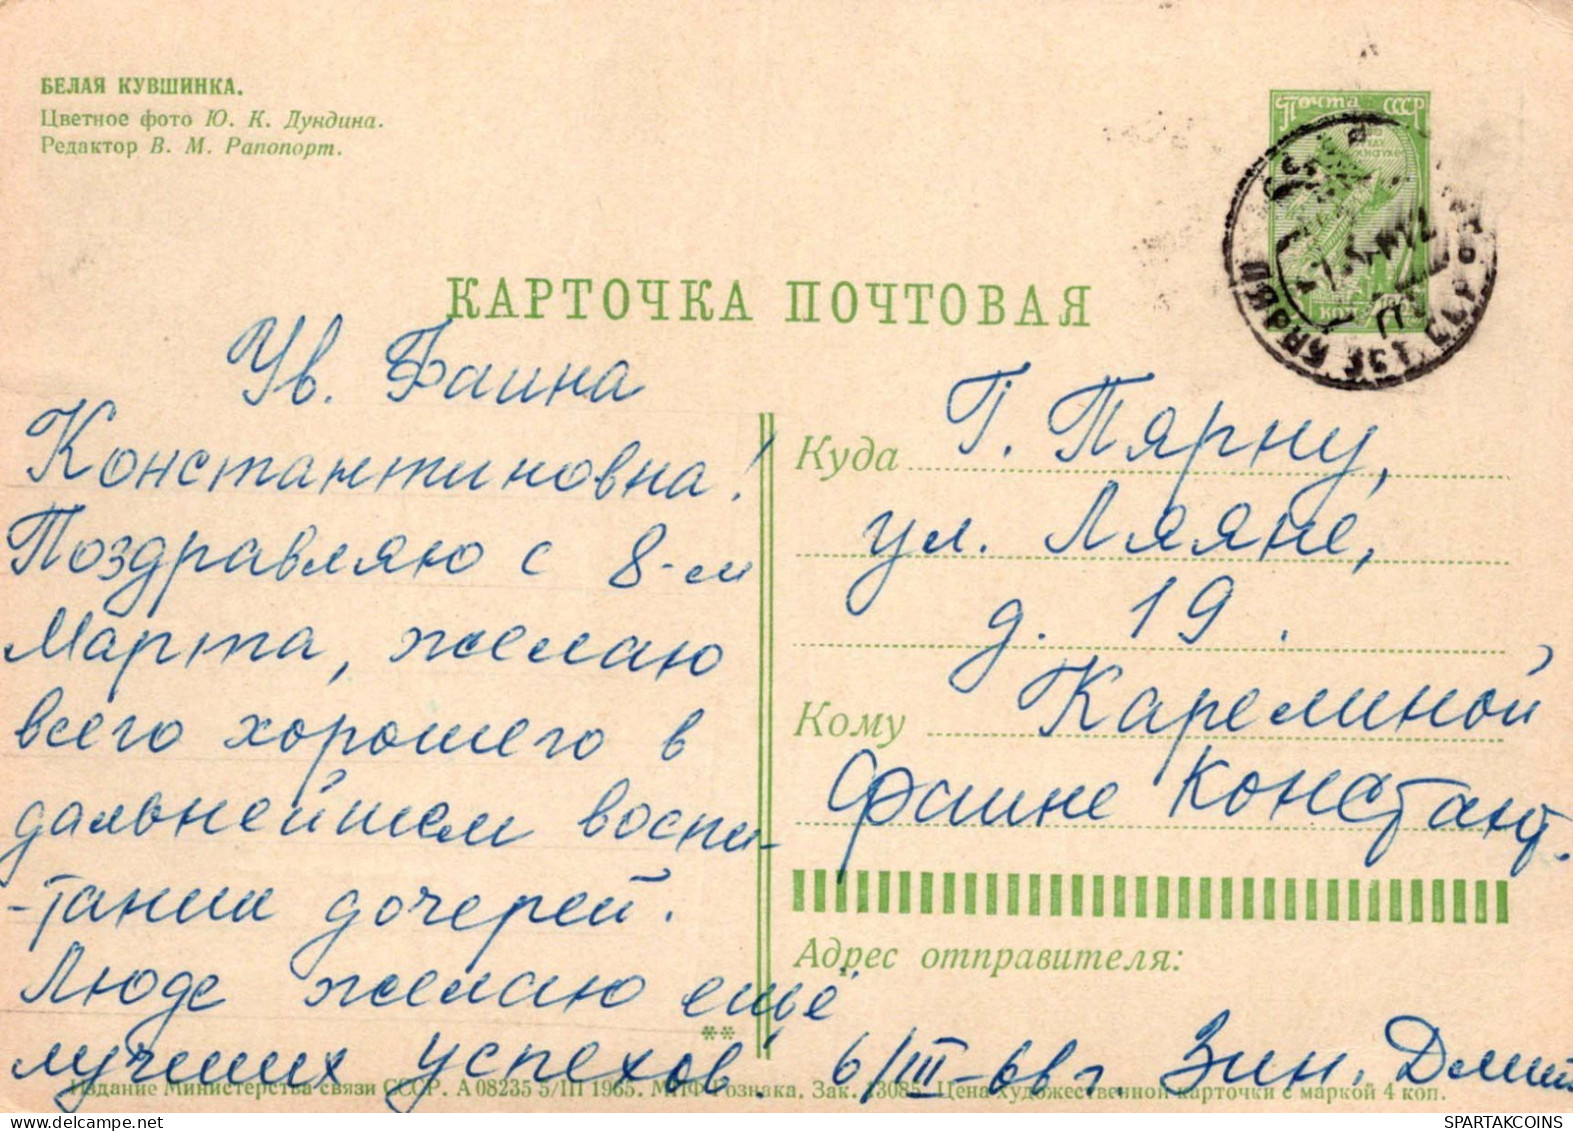 БЕЛАЯ КУВШИНКА.
Цветное фото Ю. К. Дундина.
Редактор В. М. Рапопорт.
Почта СССР
КАРТОЧКА ПОЧТОВАЯ
Ув. Фаина
Константиновна!
Поздравляю с 8-м
Марта, желаю
всего хорошего в
дальнейшем воспи-
-тании дочерей.
Люде желаю ещё
лучших успехов.
Куда Г. Пярну,
ул. Ляяне,
д. 19.
Кому Карелиной
Фаине Констант.
Адрес отправителя:
6/III-68 г. Зин. Дмит
**
Издание Министерства связи СССР. А 08235 5/III 1965. МПФ Гознака. Зак. 13085. Цена художественной карточки с маркой 4 коп.
SPARTAKCOINS